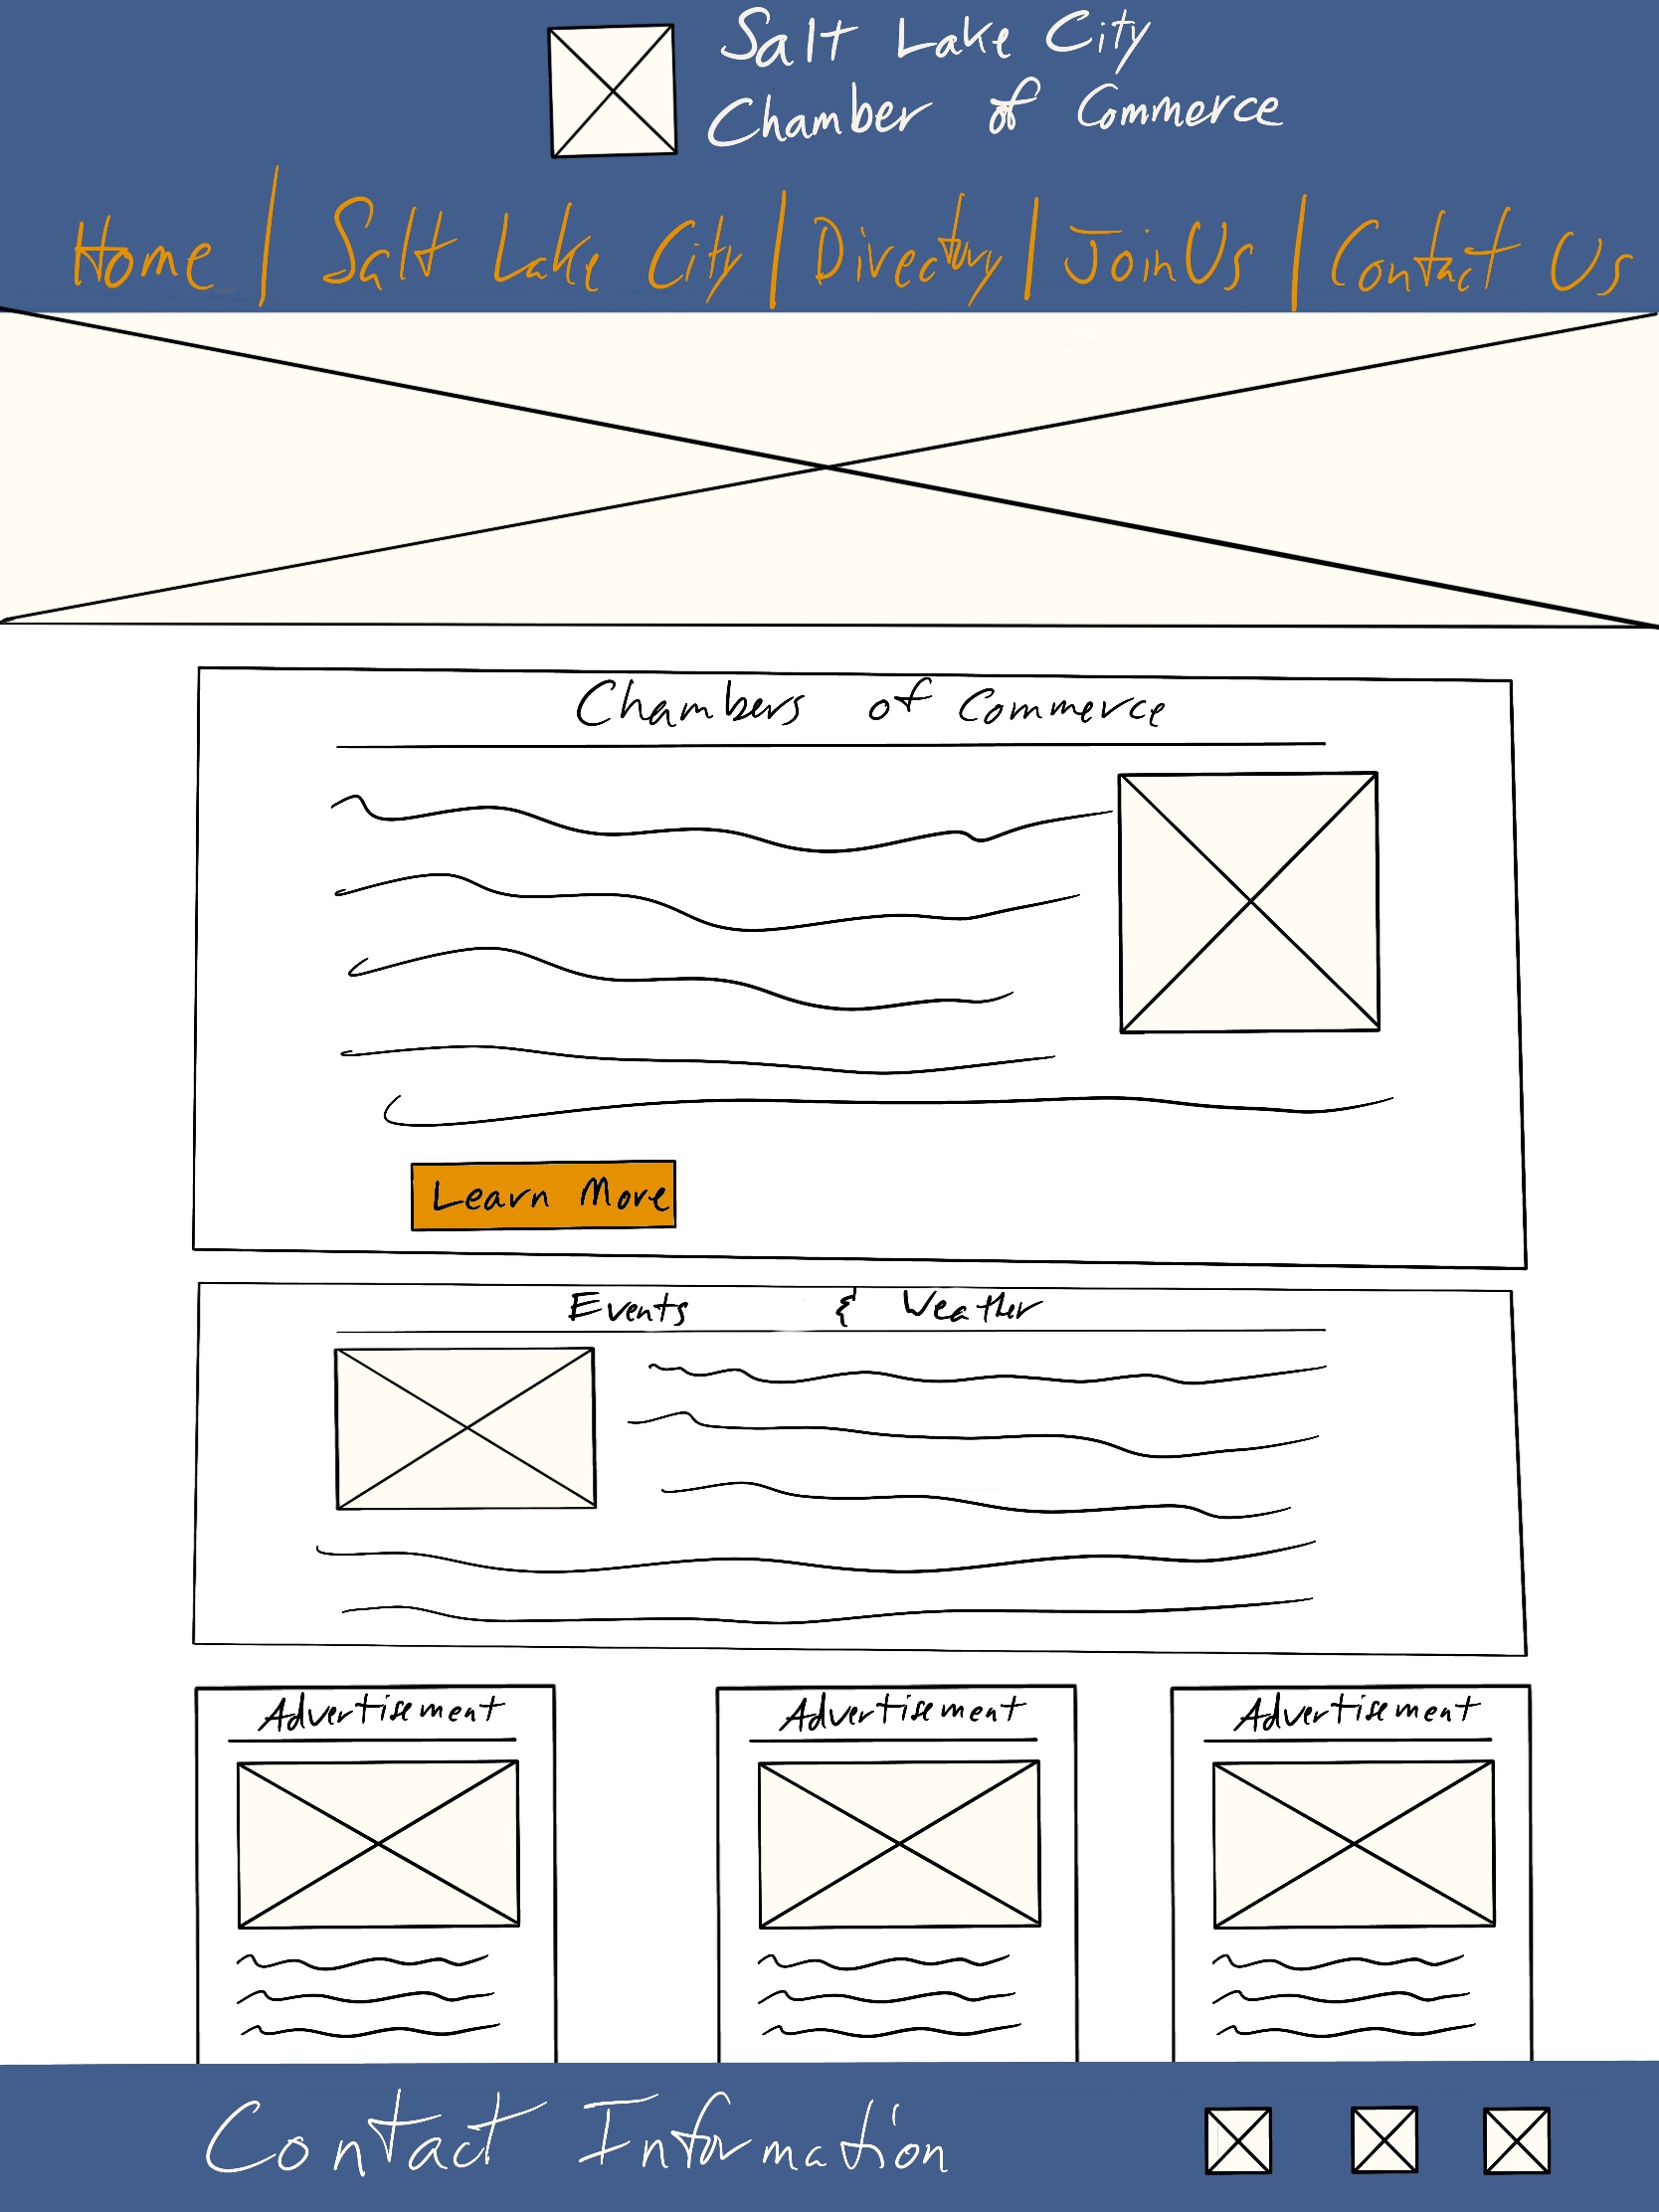 Salt Lake City
Chamber of Commerce
Home | Salt Lake City | Directory | Join Us | Contact Us
Chambers of Commerce
Learn More
Events & Weather
Advertisement Advertisement Advertisement
Contact Information